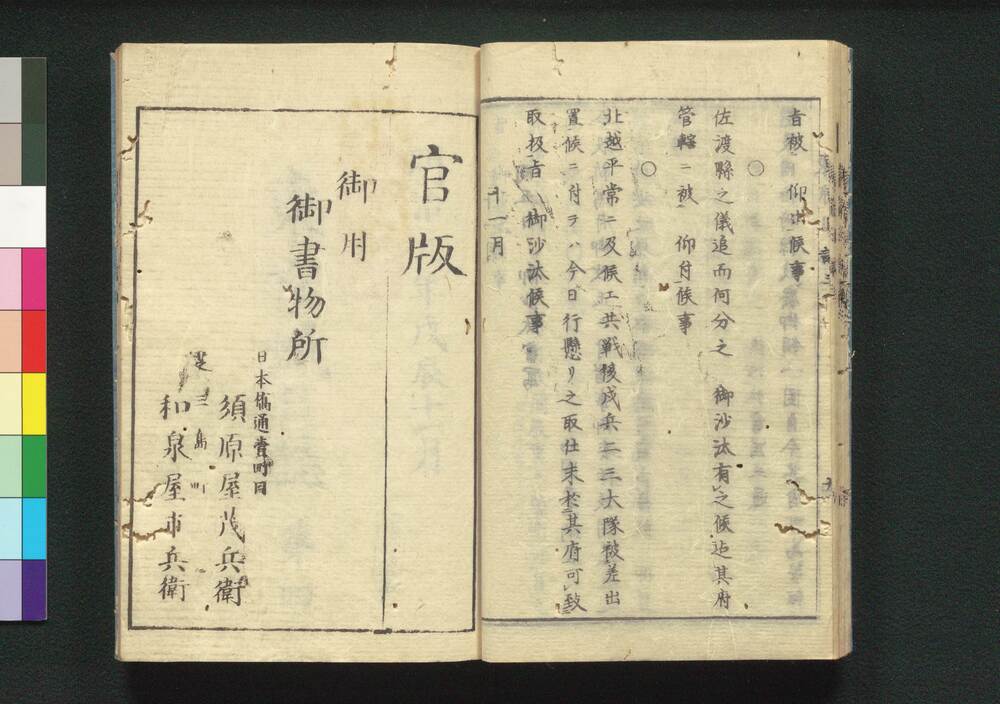 者被 仰出候事
○
佐渡縣之儀追而何分之 御沙汰有之候迄其府
管轄ニ被 仰付候事
○
北越平常ニ及候工共戦後戍兵二三大隊被差出
置候ニ付テハ今日行懸リ之取仕末於其府可致
取扱旨 御沙汰候事
十一月
官版
御用
御書物所
日本橋通壹町目
須原屋茂兵衛
芝三島町
和泉屋市兵衛